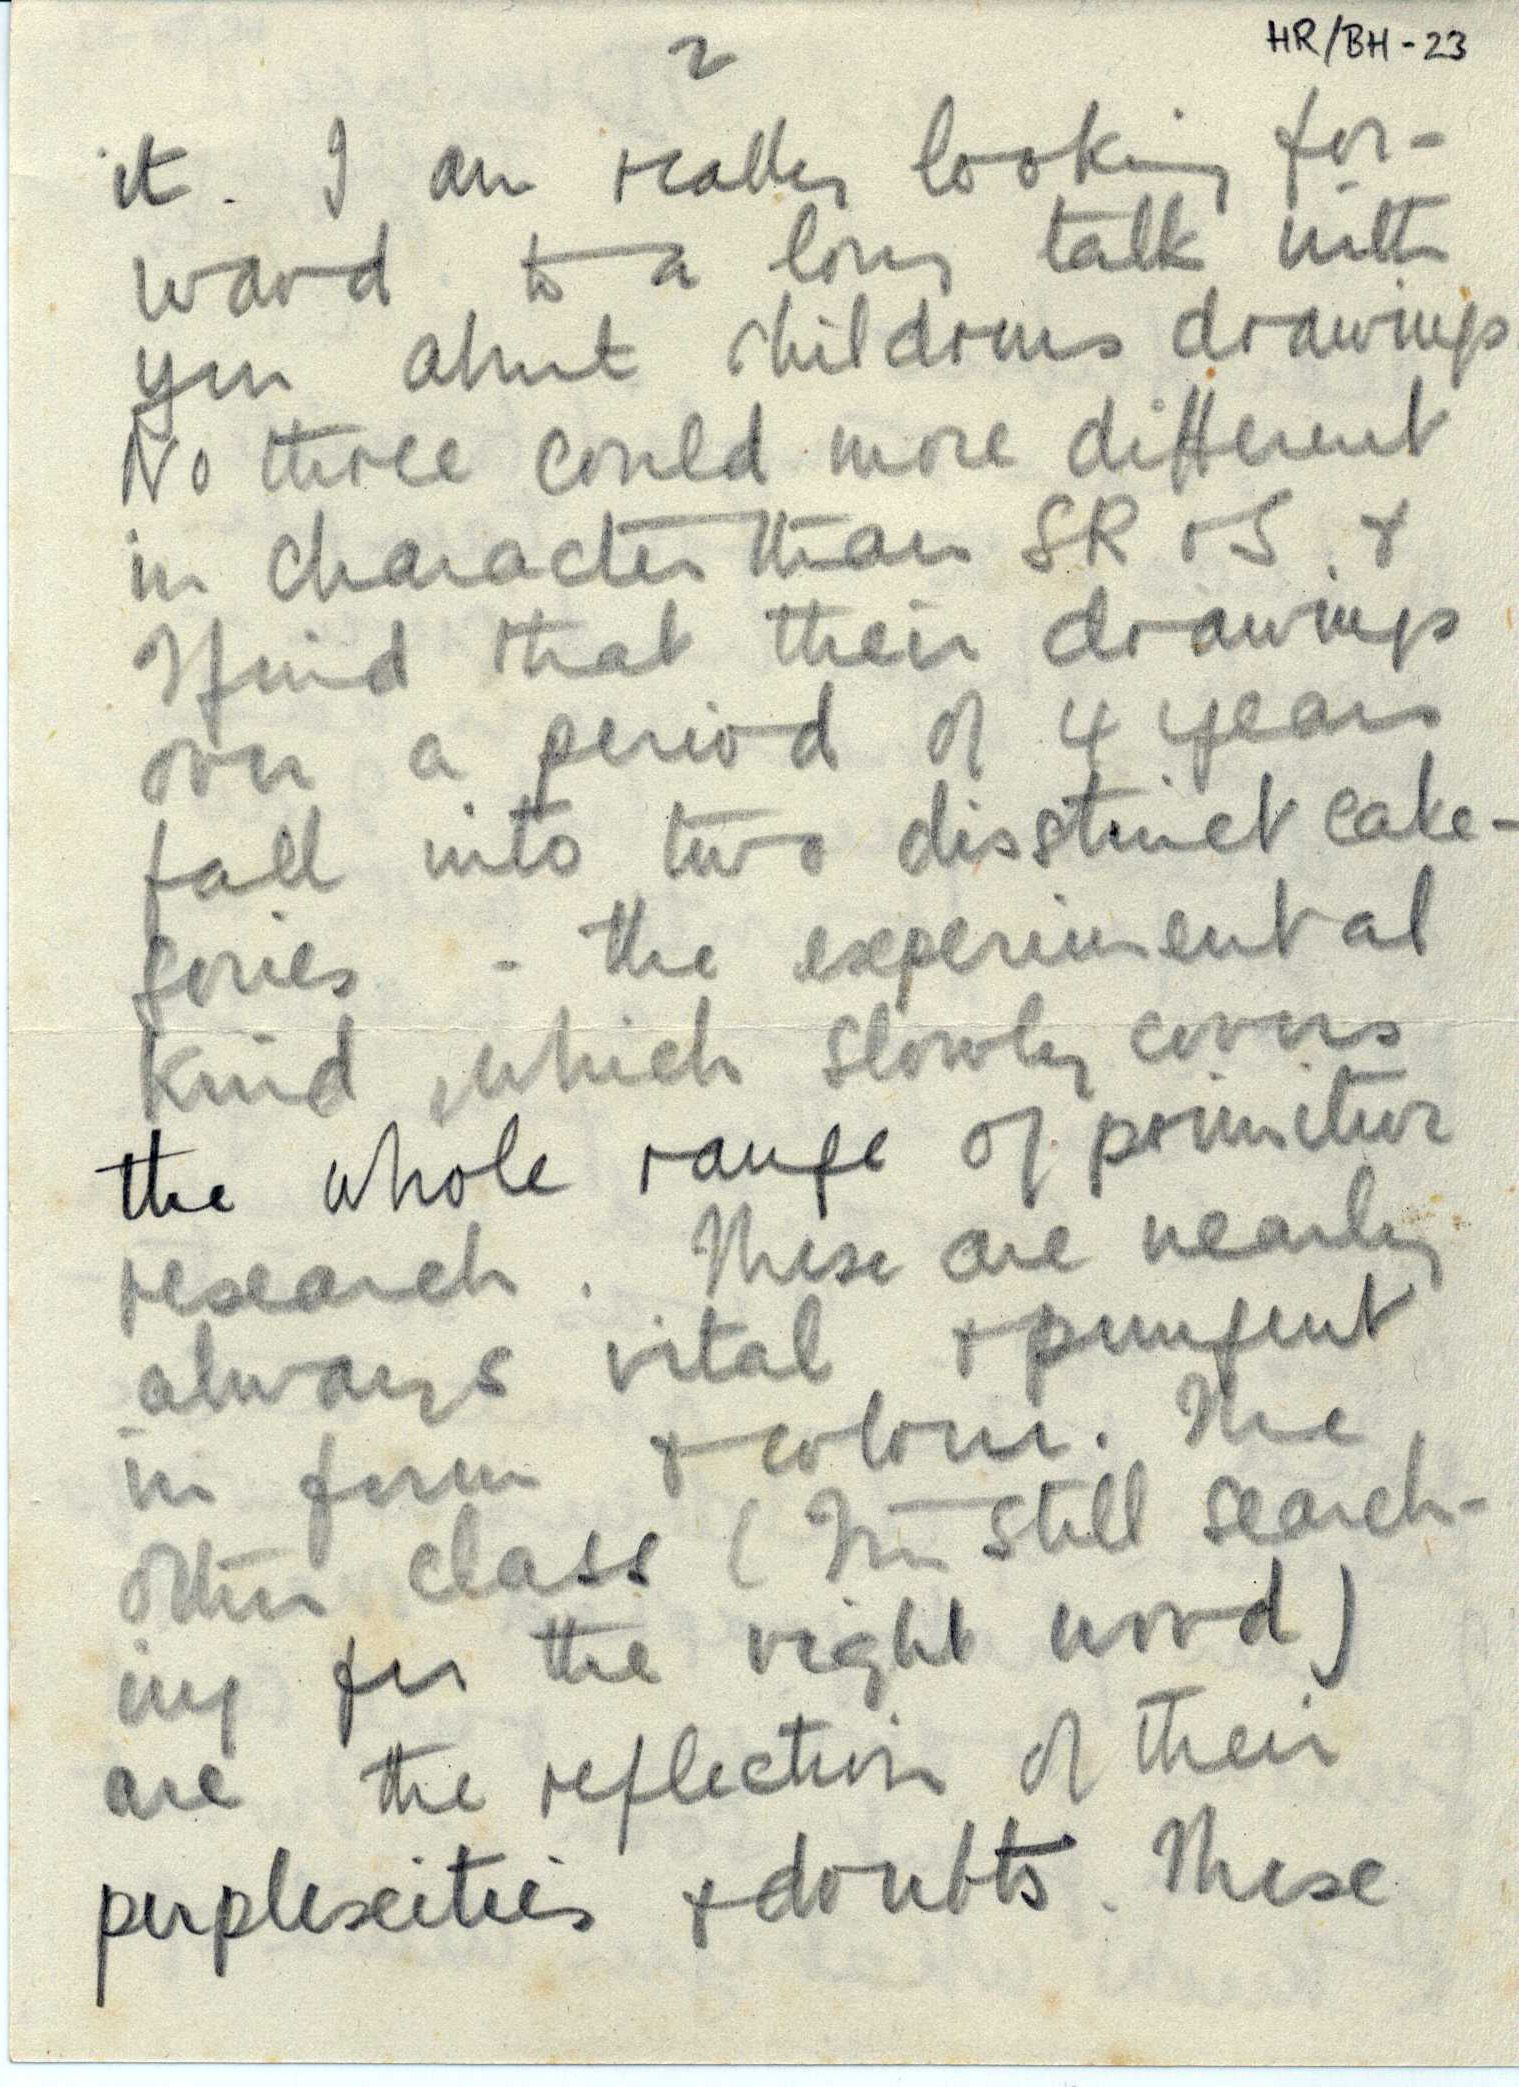 2
HR/BH-23
it. I am really looking for-
ward to a long talk with
you about childrens drawings.
No three could more different
in character than SR + S. &
I find that their drawings
over a period of 4 years
fall into two disstinct cate-
gories - the experimental
kind, which slowly covers
the whole range of primitive
research. These are nearly
always vital & pungent
in form & colour. The
other class (I'm still search-
ing for the right word)
are the reflection of their
perplexities & doubts. These